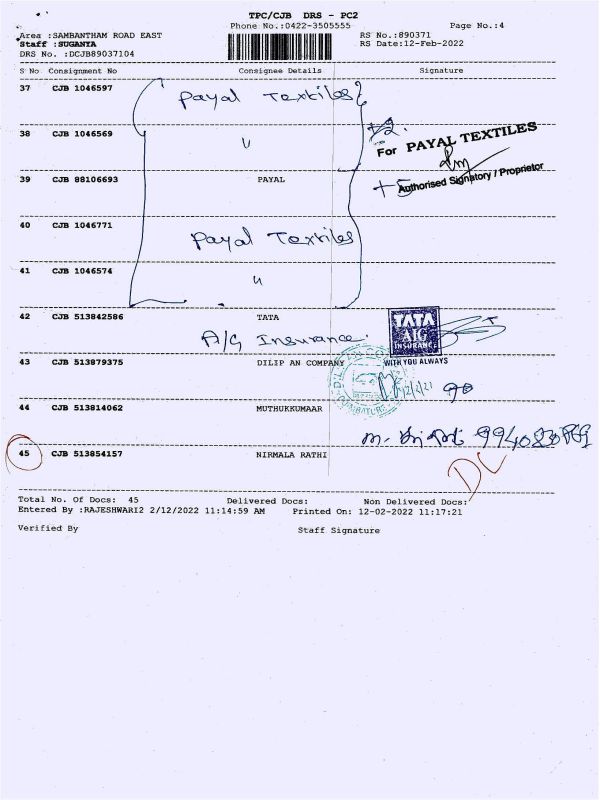 TPC/CJB DRS - PC2
Phone No.:0422-3505555 Page No.:4
Area :SAMBANTHAM ROAD EAST RS No.:890371
Staff :SUGANYA RS Date:12-Feb-2022
DRS No. :DCJB89037104
S No Consignment No Consignee Details Signature
37 CJB 1046597 Payal Textiles
38 CJB 1046569 "
For PAYAL TEXTILES
39 CJB 88106693 PAYAL
+5 Authorised Signatory / Proprietor
40 CJB 1046771 Payal Textiles
41 CJB 1046574 "
42 CJB 513842586 TATA
A/G Insurance.
TATA
AIG
INSURANCE
WITH YOU ALWAYS
43 CJB 513879375 DILIP AN COMPANY
44 CJB 513814062 MUTHUKKUMAAR
45 CJB 513854157 NIRMALA RATHI
DL
Total No. Of Docs: 45 Delivered Docs: Non Delivered Docs:
Entered By :RAJESHWARI2 2/12/2022 11:14:59 AM Printed On: 12-02-2022 11:17:21
Verified By Staff Signature